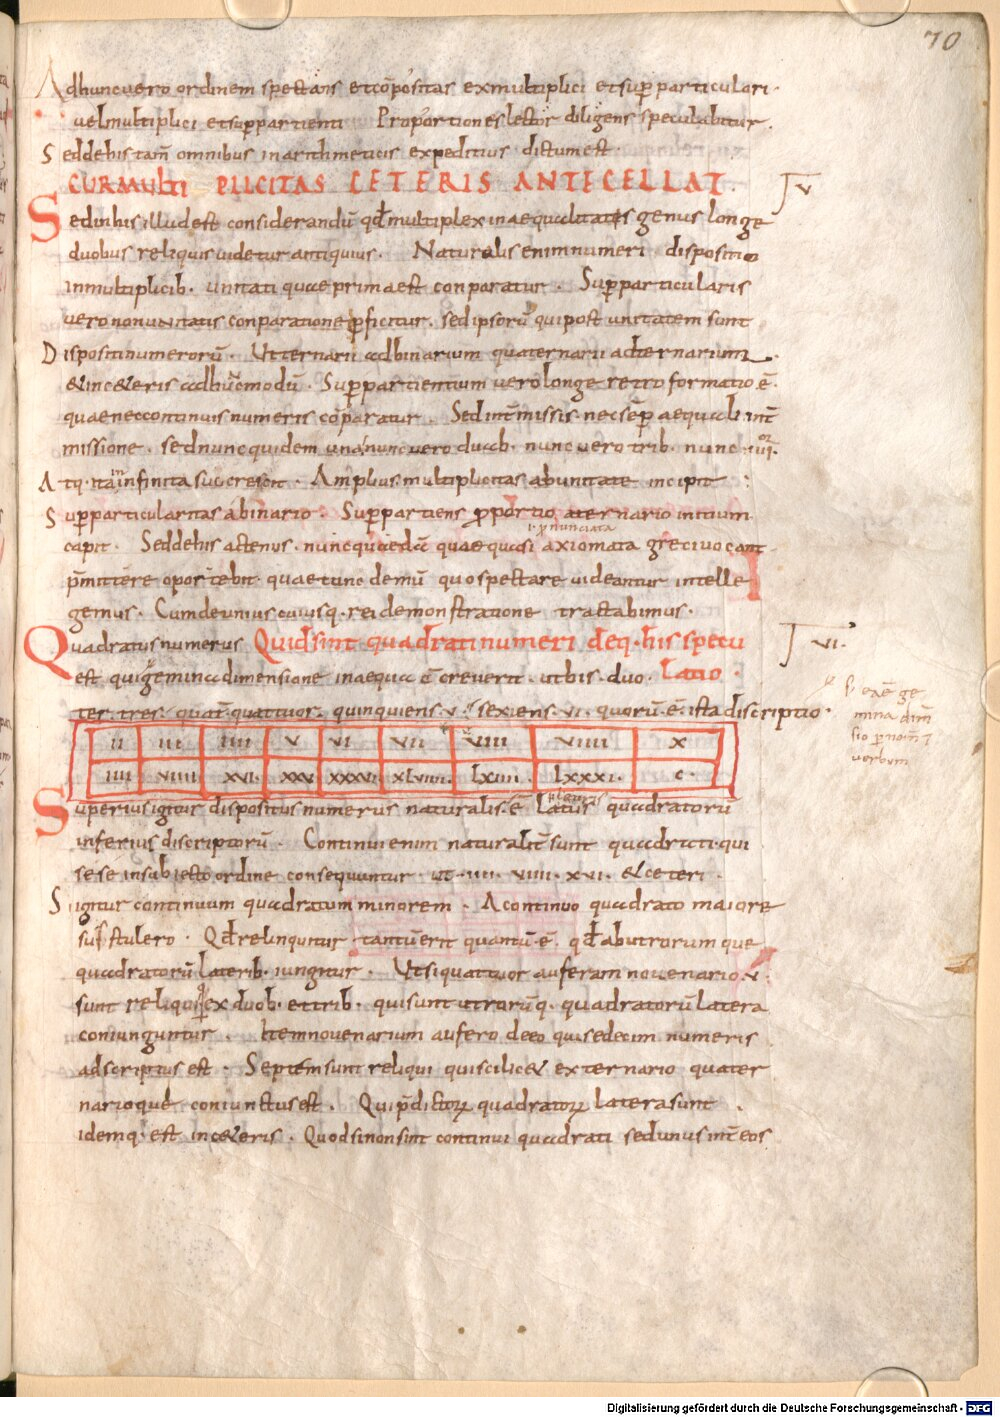 70
Adhuncuero ordinem spectans etcōpositas exmultiplici etsup̄particulari·
uelmultiplici etsup̄partienti Proportiones lector diligens speculabitur.
Seddehis tam̄ omnibus inarithmeticis expeditius dictumest.
CURMULTI PLICITAS CETERIS ANTECELLAT. V
Sedinhis illudest considerandū qđmultiplex inaequalitatis genus longe
duobus reliquis uidetur antiquius. Naturalis enimnumeri dispositio
inmultiplicib. unitati quaeprimaest conparatur. Sup̄particularis
uerononunitatis conparatione p̄ficitur. sedipsorū quipost unitatem sunt
Dispositinumerorū. Utternarii adbinarium quaternarii adternarium.
&inc&eris adhūcmodū. Sup̄partientium uerolonge retro formatio ē.
quaeneccontinuis numeris cōparatur. Sedint̄missis. necsēp̄ aequali int̄
missione. sednuncquidem una nuncuero duab. nuncuero trib. nunc iiii.
Atq. itain infinita succrescit. Amplius multiplicitas abunitate incipit:
Sup̄particularitas abinario. Sup̄partiens p̄portio aternario initium
i. p̄nunciata
capit. Seddehis actenus. nuncquaedā quaequasi axiomata greciuocant
p̄mittere oportebit. quaetunc demū quospectare uideantur intelle
gemus. Cumdeunius cuiusq. rei demonstratione tractabimus.
Quadratus numerus Quidsint quadratinumeri deq. his specu VI.
est quigemina dimensione inaequa ē creuerit. utbis. duo. Latio.
ter. tres. quat̄. quattuor. quinquiens. v. sexiens. vi. quorū. ē. ista discriptio.
ge
mina dim̄
sio
uerbum
II III IIII V VI VII VIII VIIII X
IIII VIIII XVI. XXV XXXVI XLVIIII. LXIIII. LXXXI. C.
Superius igitur dispositus numerus naturalis. ē Latus quadratorū
inferius discriptorū. Continui enim naturalit̄ sunt quadrati. qui
sese insubiecto ordine consequuntur. ut. IIII. VIIII. XVI. &ceteri.
Sigitur continuum quadratum minorem. Acontinuo quadrato maiore
sustulero. Qđrelinquitur tantūerit quantū. ē. qđabutrorum que
quadratorū laterib. iungitur. Utsiquattuor auferam nouenario. v.
sunt reliqui ex duob. ettrib. quisunt utrorūq. quadratorū latera
coniunguntur. Itemnouenarium aufero deeo quisedecim numeris
adscriptus est. Septem sunt reliqui quiscilic& externario quater
narioque coniunctus est. Quip̄dictorꝝ quadratorꝝ latera sunt.
idemq. est inc&eris. Quodsinonsint continui quadrati sedunus int̄eos
Digitalisierung gefördert durch die Deutsche Forschungsgemeinschaft - DFG